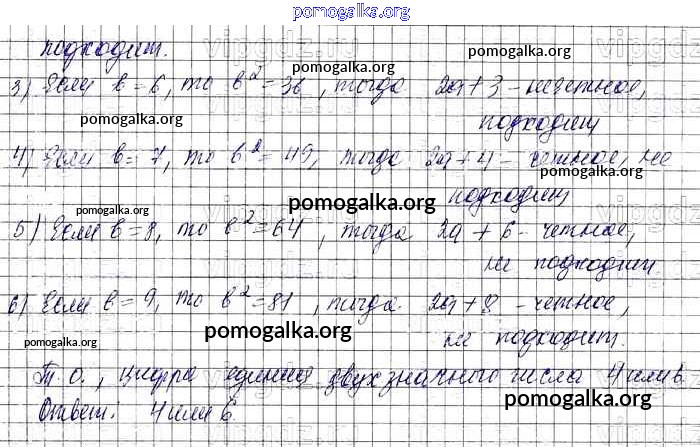 pomogalka.org
подходит.
3) Если b=6, то b²=36, тогда 2a+3 - нечетное,
подходит
4) Если b=7, то b²=49, тогда 2a+4 - четное, не
подходит
5) Если b=8, то b²=64, тогда 2a+6 - четное,
не подходит.
6) Если b=9, то b²=81, тогда 2a+8 - четное,
не подходит.
Т.О., цифра единиц двухзначного числа 4 или 6.
Ответ. 4 или 6.
pomogalka.org
pomogalka.org
pomogalka.org
pomogalka.org
pomogalka.org
pomogalka.org
pomogalka.org
pomogalka.org
pomogalka.org
pomogalka.org